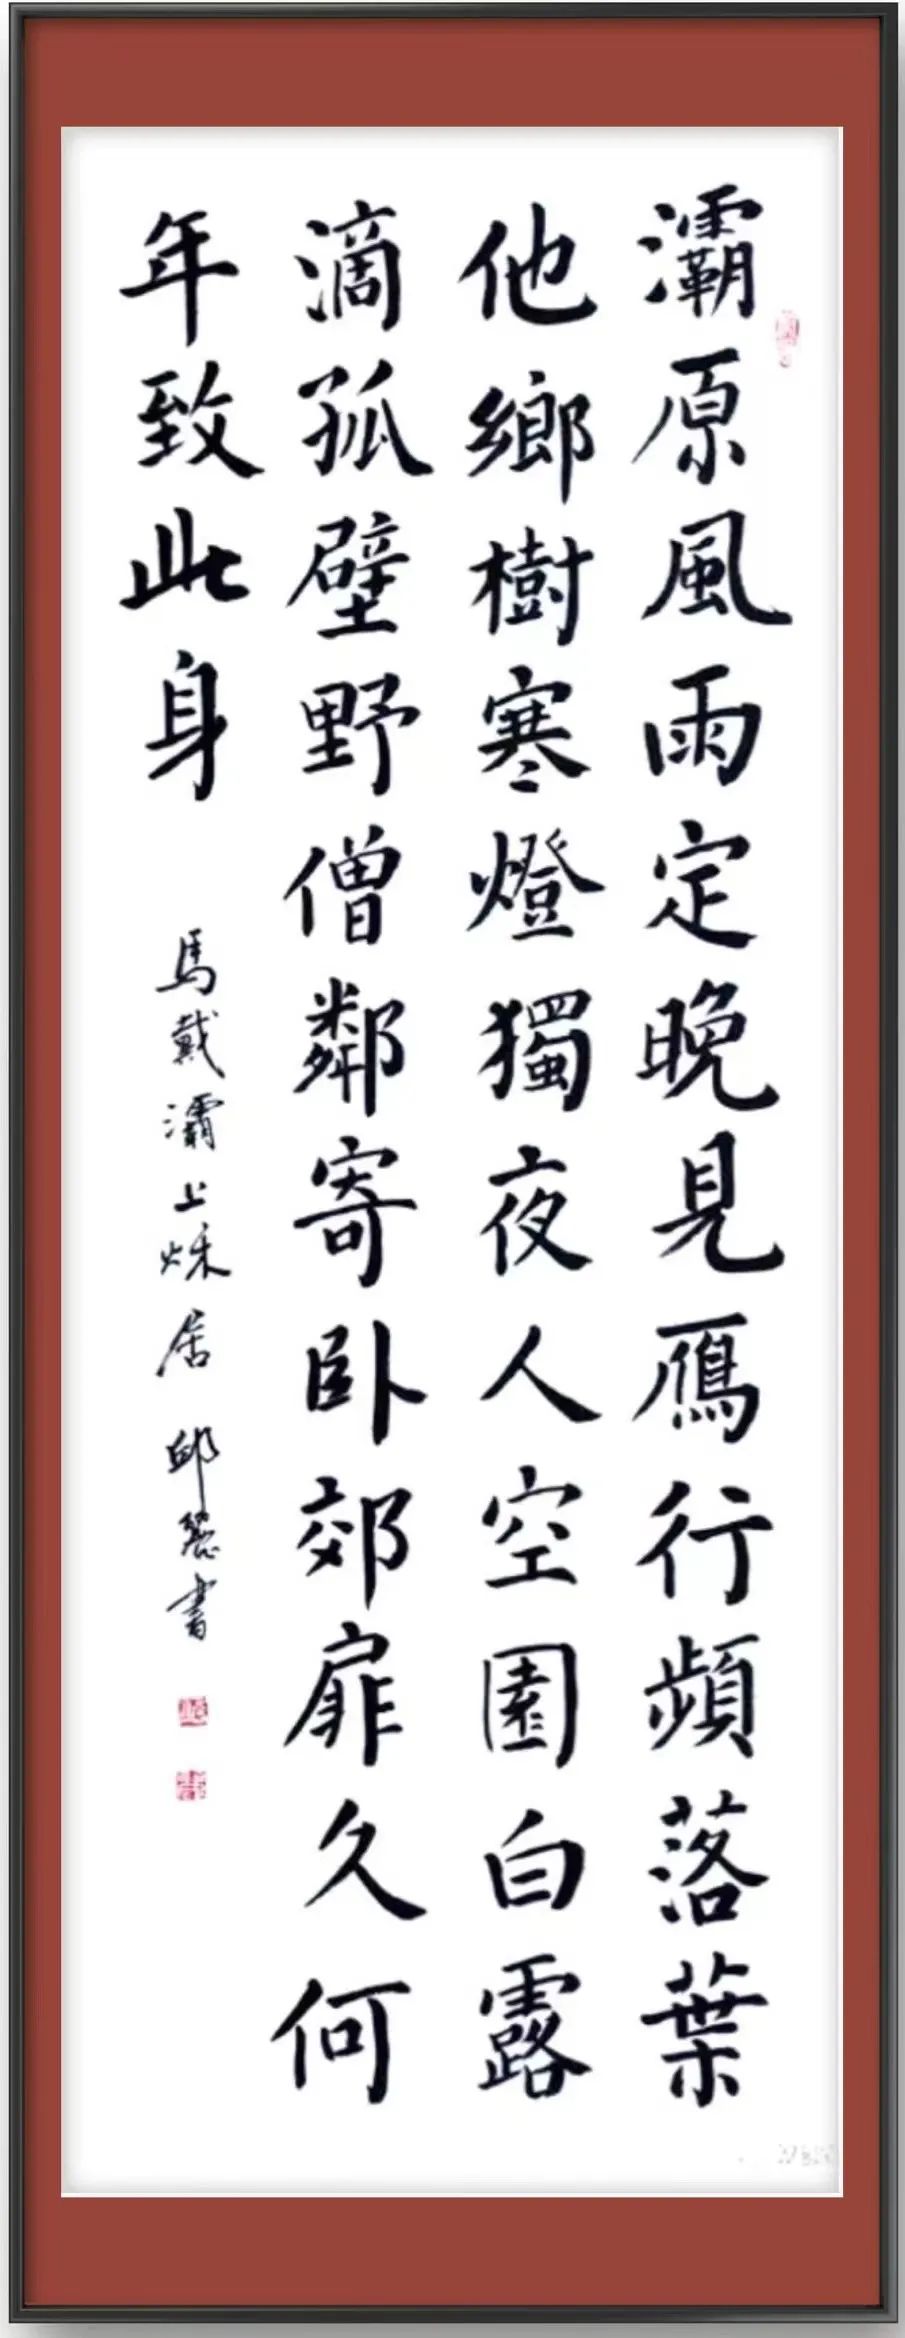 灞原風雨定晚見鴈行頻落葉
他鄉樹寒燈獨夜人空園白露
滴孤壁野僧鄰寄卧郊扉久何
年致此身
馬戴灞上烌居 邱麗書